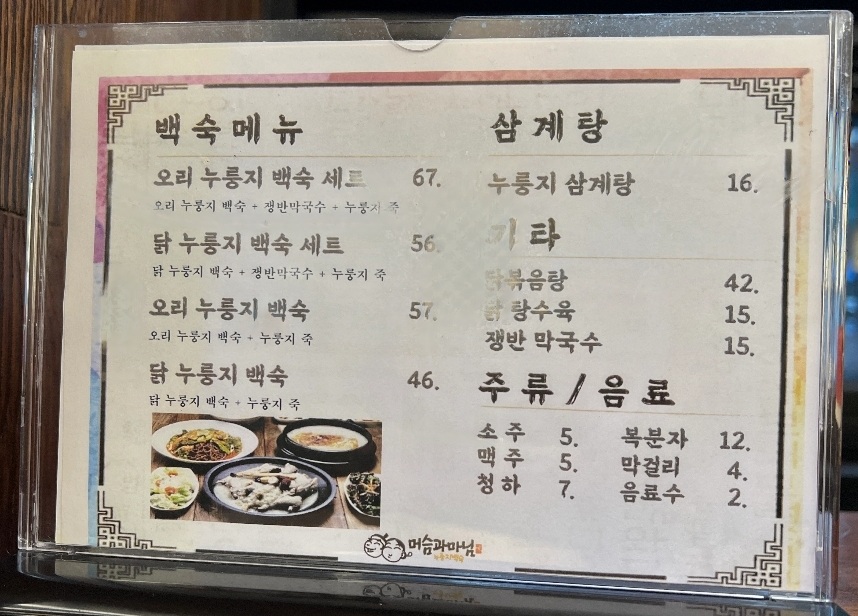 백숙메뉴
오리 누룽지 백숙 세트 67.
오리 누룽지 백숙 + 쟁반막국수 + 누룽지 죽
닭 누룽지 백숙 세트 56.
닭 누룽지 백숙 + 쟁반막국수 + 누룽지 죽
오리 누룽지 백숙 57.
오리 누룽지 백숙 + 누룽지 죽
닭 누룽지 백숙 46.
닭 누룽지 백숙 + 누룽지 죽
삼계탕
누룽지 삼계탕 16.
기타
닭볶음탕 42.
닭 탕수육 15.
쟁반 막국수 15.
주류/음료
소주 5. 복분자 12.
맥주 5. 막걸리 4.
청하 7. 음료수 2.
머슴과마님
누룽지백숙